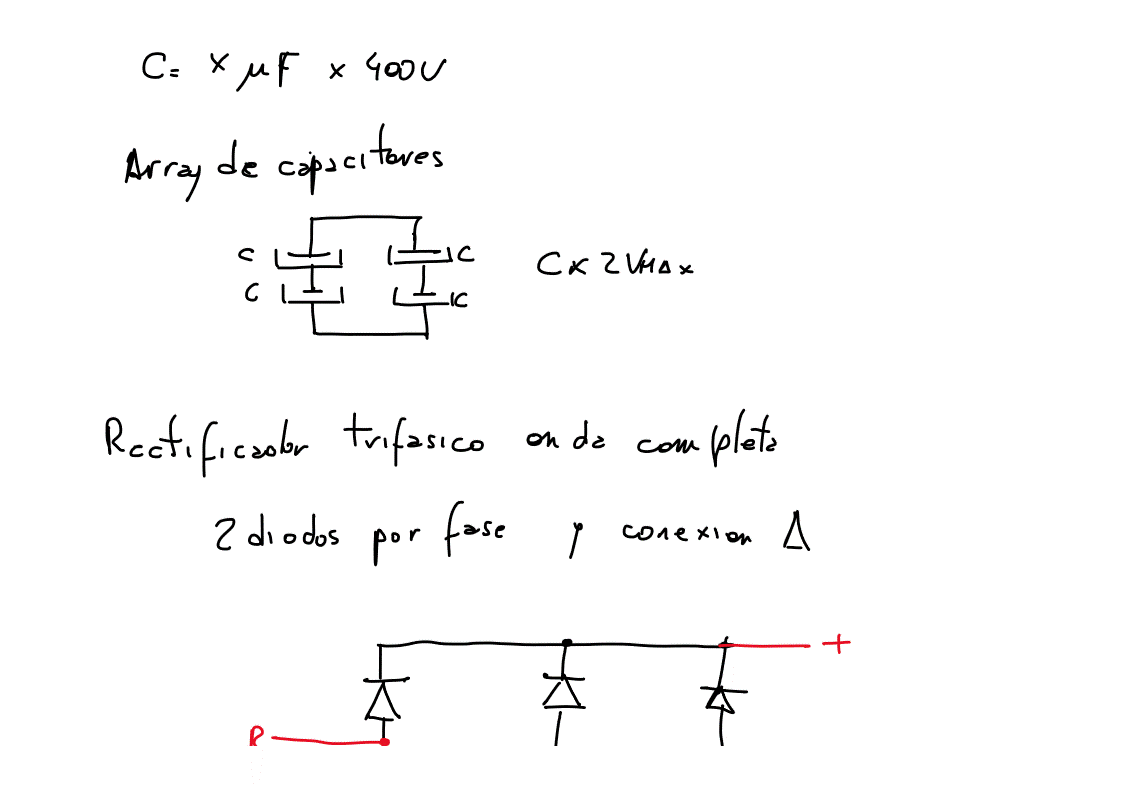 C= x μF x 400V
Array de capacitores
C C
C x 2VMAx
C C
Rectificador trifasico onda completa
2 diodos por fase y conexion Δ
+
R